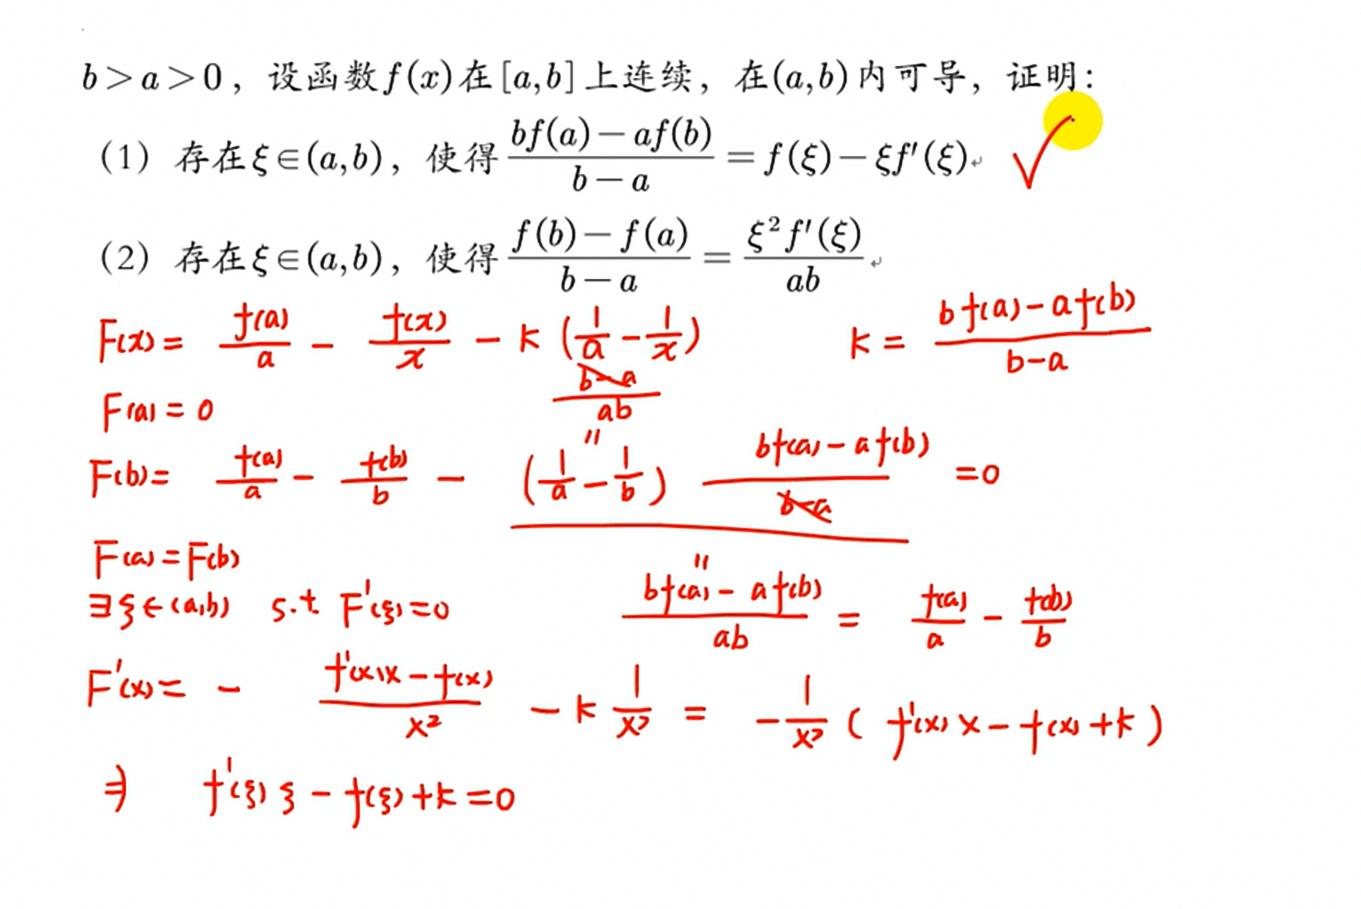 b>a>0，设函数f(x)在[a,b]上连续，在(a,b)内可导，证明：
（1）存在ξ∈(a,b)，使得 \frac{bf(a)-af(b)}{b-a}=f(ξ)-ξf'(ξ) ✓
（2）存在ξ∈(a,b)，使得 \frac{f(b)-f(a)}{b-a}=\frac{ξ^2f'(ξ)}{ab}
F(x)= \frac{f(a)}{a} - \frac{f(x)}{x} - k(\frac{1}{a}-\frac{1}{x})  k= \frac{bf(a)-af(b)}{b-a}
F(a)=0  \frac{b-a}{ab}
"
F(b)= \frac{f(a)}{a} - \frac{f(b)}{b} - (\frac{1}{a}-\frac{1}{b}) \frac{bf(a)-af(b)}{b-a} =0
F(a)=F(b)
"
∃ξ∈(a,b) s.t F'(ξ)=0  \frac{bf(a)-af(b)}{ab} = \frac{f(a)}{a} - \frac{f(b)}{b}
F'(x)= - \frac{f'(x)x-f(x)}{x^2} - k\frac{1}{x^2} = -\frac{1}{x^2}(f'(x)x-f(x)+k)
⇒ f'(ξ)ξ-f(ξ)+k=0